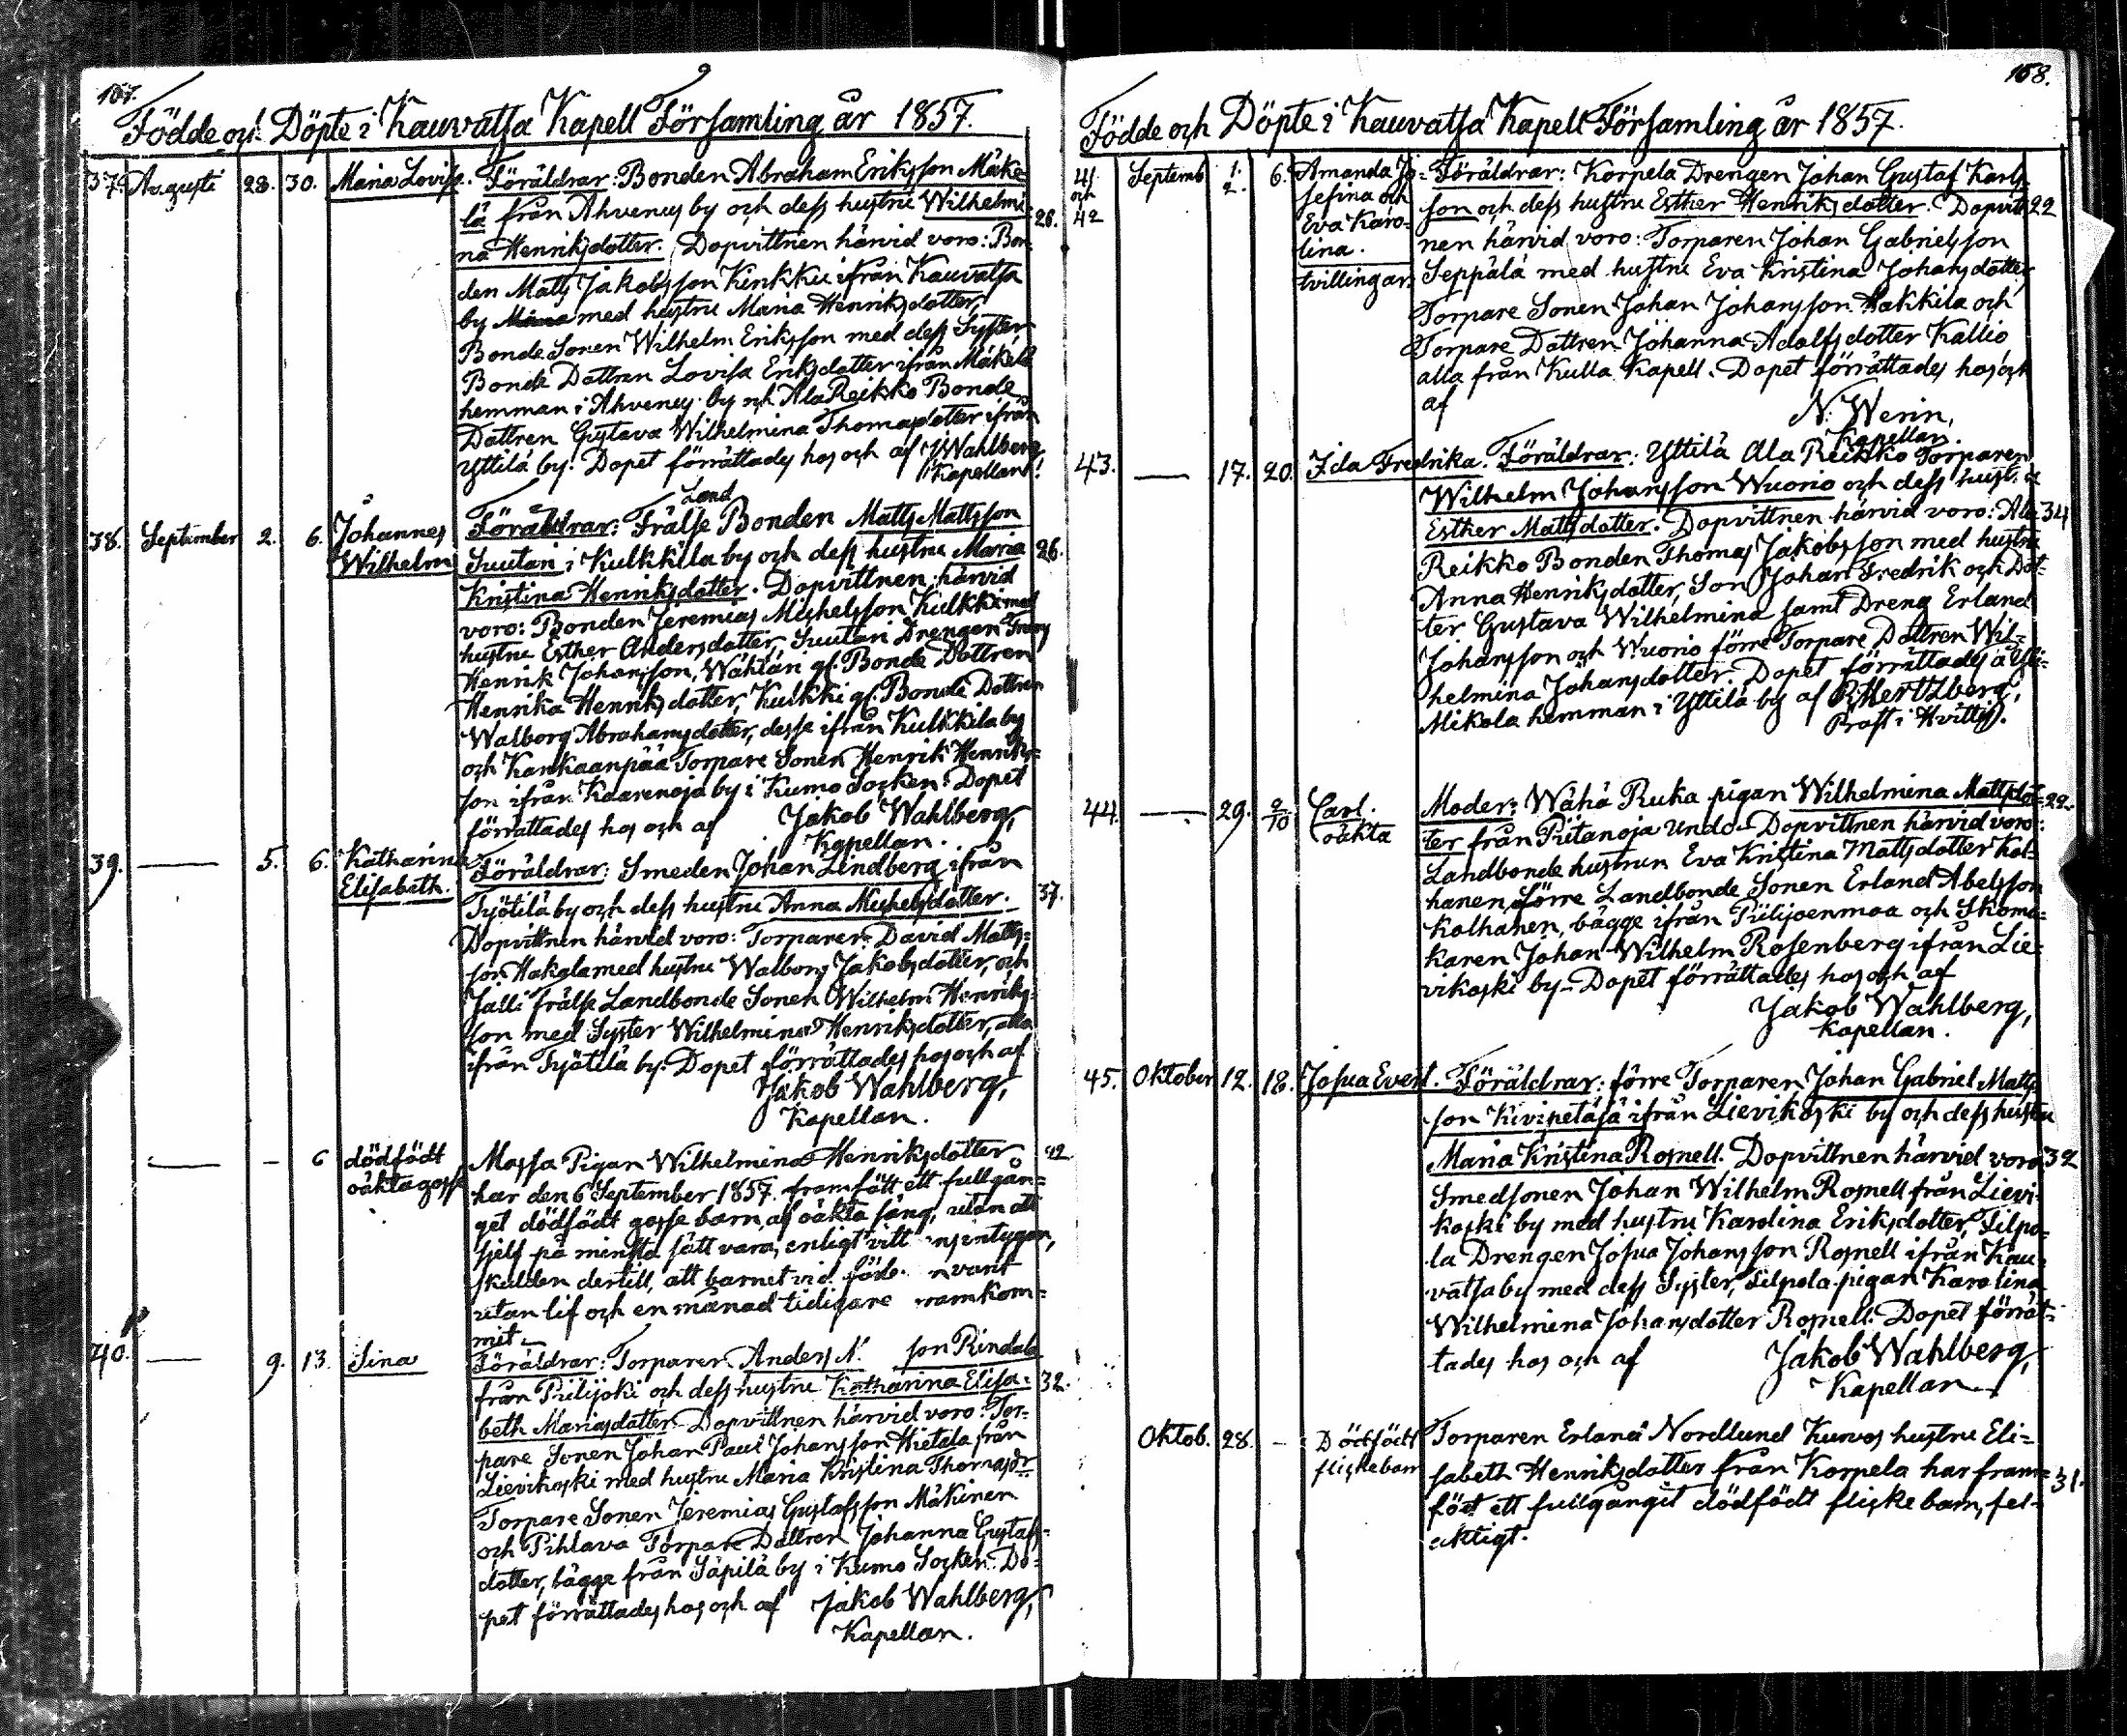 107.
Födde och Döpte i Kauvatsa Kapell Församling år 1857.
37. Augusti 28. 30. Maria Lovisa. Föräldrar: Bonden Abraham Eriksson Mäke-
lä från Ahvenus by och dess hustru Wilhelmi- 26.
na Henriksdotter. Dopvittnen härvid voro: Bon-
den Matts Jakobsson Kinkku ifrån Kauvatsa
by med hustru Maria Henriksdotter,
Bonde Sonen Wilhelm Eriksson med dess Syster
Bonde Dottren Lovisa Eriksdotter ifrån Mäkelä
hemman i Ahvenus by och Ala Reikko Bonde
Dottren Gustava Wilhelmina Thomasdotter ifrån
Yttilä by. Dopet förrättades hos och af J Wahlberg,
Kapellan.
Land
38. September 2. 6. Johannes Föräldrar: Frälse Bonden Matts Mattsson
Wilhelm Suutari i Kulkkila by och dess hustru Maria 26.
Kristina Henriksdotter. Dopvittnen härvid
voro: Bonden Jeremias Michelsson Kulkki med
hustru Esther Andersdotter, Suutari Drengen Frans
Henrik Johansson, Wähtari gl. Bonde Dottren
Henrika Henriksdotter, Kulkki gl. Bonde Dottren
Walborg Abrahamsdotter, desse ifrån Kulkkila by
och Kankaanpää Torpare Sonen Henrik Henriks-
son ifrån Kaarenoja by i Kumo Socken. Dopet
förrättades hos och af Jakob Wahlberg,
Kapellan.
39. — 5. 6. Katharina Föräldrar: Smeden Johan Lindberg ifrån
Elisabeth. Työtilä by och dess hustru Anna Michelsdotter. 37.
Dopvittnen härvid voro: Torparen David Matts-
son Hakala med hustru Walborg Jakobsdotter, och
Jalli frälse Landbonde Sonen Wilhelm Henriks-
son med Syster Wilhelmina Henriksdotter, alla
ifrån Työtilä by. Dopet förrättades hos och af
Jakob Wahlberg,
Kapellan.
— - 6 dödfödt Massa Pigan Wilhelmina Henriksdotter 42.
oäkta gosse har den 6 September 1857. framfödt ett fullgån-
get dödfödt gosse barn, af oäkta säng, utan att
sjelf på minsta sätt vara, enligt vittnens intygan,
skulden dertill, att barnet vid födeln varit
utan lif och en månad tidigare framkom-
mit.
40. — 9. 13. Sina Föräldrar: Torparen Anders son Rindala
från Piilijoki och dess hustru Katharina Elisa- 32.
beth Mariasdotter. Dopvittnen härvid voro: Tor-
pare Sonen Johan Paul Johansson Hietala från
Lievikoski med hustru Maria Kristina Thomasdr
Torpare Sonen Jeremias Gustafsson Mäkinen
och Pihlava Torpare Dottren Johanna Gustafs-
dotter, bägge från Säpilä by i Kumo Socken. Do-
pet förrättades hos och af Jakob Wahlberg,
Kapellan.
108.
Födde och Döpte i Kauvatsa Kapell Församling år 1857.
41. Septemb. 1. 6. Amanda Jo- Föräldrar: Korpela Drengen Johan Gustaf Karls-
och 2. sefina och son och dess hustru Esther Henriksdotter. Dopvitt- 22
42 Eva Karo- nen härvid voro: Torparen Johan Gabrielsson
lina. Seppälä med hustru Eva Kristina Johansdotter,
tvillingar. Torpare Sonen Johan Johansson Hakkila och
Torpare Dottren Johanna Adolfsdotter Kallio
alla från Kulla Kapell. Dopet förrättades hos och
af N. Werin,
Kapellan.
43. — 17. 20. Ida Fredrika. Föräldrar: Yttilä Ala Reikko Torparen
Wilhelm Johansson Wuorio och dess hust.
Esther Mattsdotter. Dopvittnen härvid voro: Ala 34
Reikko Bonden Thomas Jakobsson med hustru
Anna Henriksdotter, Son Johan Fredrik och Dot-
ter Gustava Wilhelmina samt Dreng Erland
Johansson och Wuorio förre Torpare Dottren Wil-
helmina Johansdotter. Dopet förrättades å Yli-
Mikola hemman i Yttilä by af Hertzberg,
Prost i Hvittis.
44. — 29. 2/10 Carl. Moder: Wähä Ruka pigan Wilhelmina Mattsdot- 22.
oäkta ter från Piitanoja Undo. Dopvittnen härvid voro:
Landbonde hustrun Eva Kristina Mattsdotter Kol-
hanen, förre Landbonde Sonen Erland Abelsson
Kolhanen, bägge ifrån Piilijoenmaa och Skoma-
karen Johan Wilhelm Rosenberg ifrån Lie-
vikoski by. Dopet förrättades hos och af
Jakob Wahlberg,
Kapellan.
45. Oktober 12. 18. Josua Evert. Föräldrar: förre Torparen Johan Gabriel Matts-
son Kivipetäjä ifrån Lievikoski by och dess hustru
Maria Kristina Rosnell. Dopvittnen härvid voro 32
Smedsonen Johan Wilhelm Rosnell från Lievi-
koski by med hustru Karolina Eriksdotter, Silpo-
la Drengen Josua Johansson Rosnell ifrån Kau-
vatsa by med dess Syster, Silpola pigan Karolina
Wilhelmina Johansdotter Rosnell. Dopet förrät-
tades hos och af Jakob Wahlberg,
Kapellan
Oktob. 28. - Dödfödt Torparen Erland Nordlund Kurvos hustru Eli-
flickebarn sabeth Henriksdotter från Korpela har fram- 31.
födt ett fullgånget dödfödt flicke barn, fel-
aktigt.